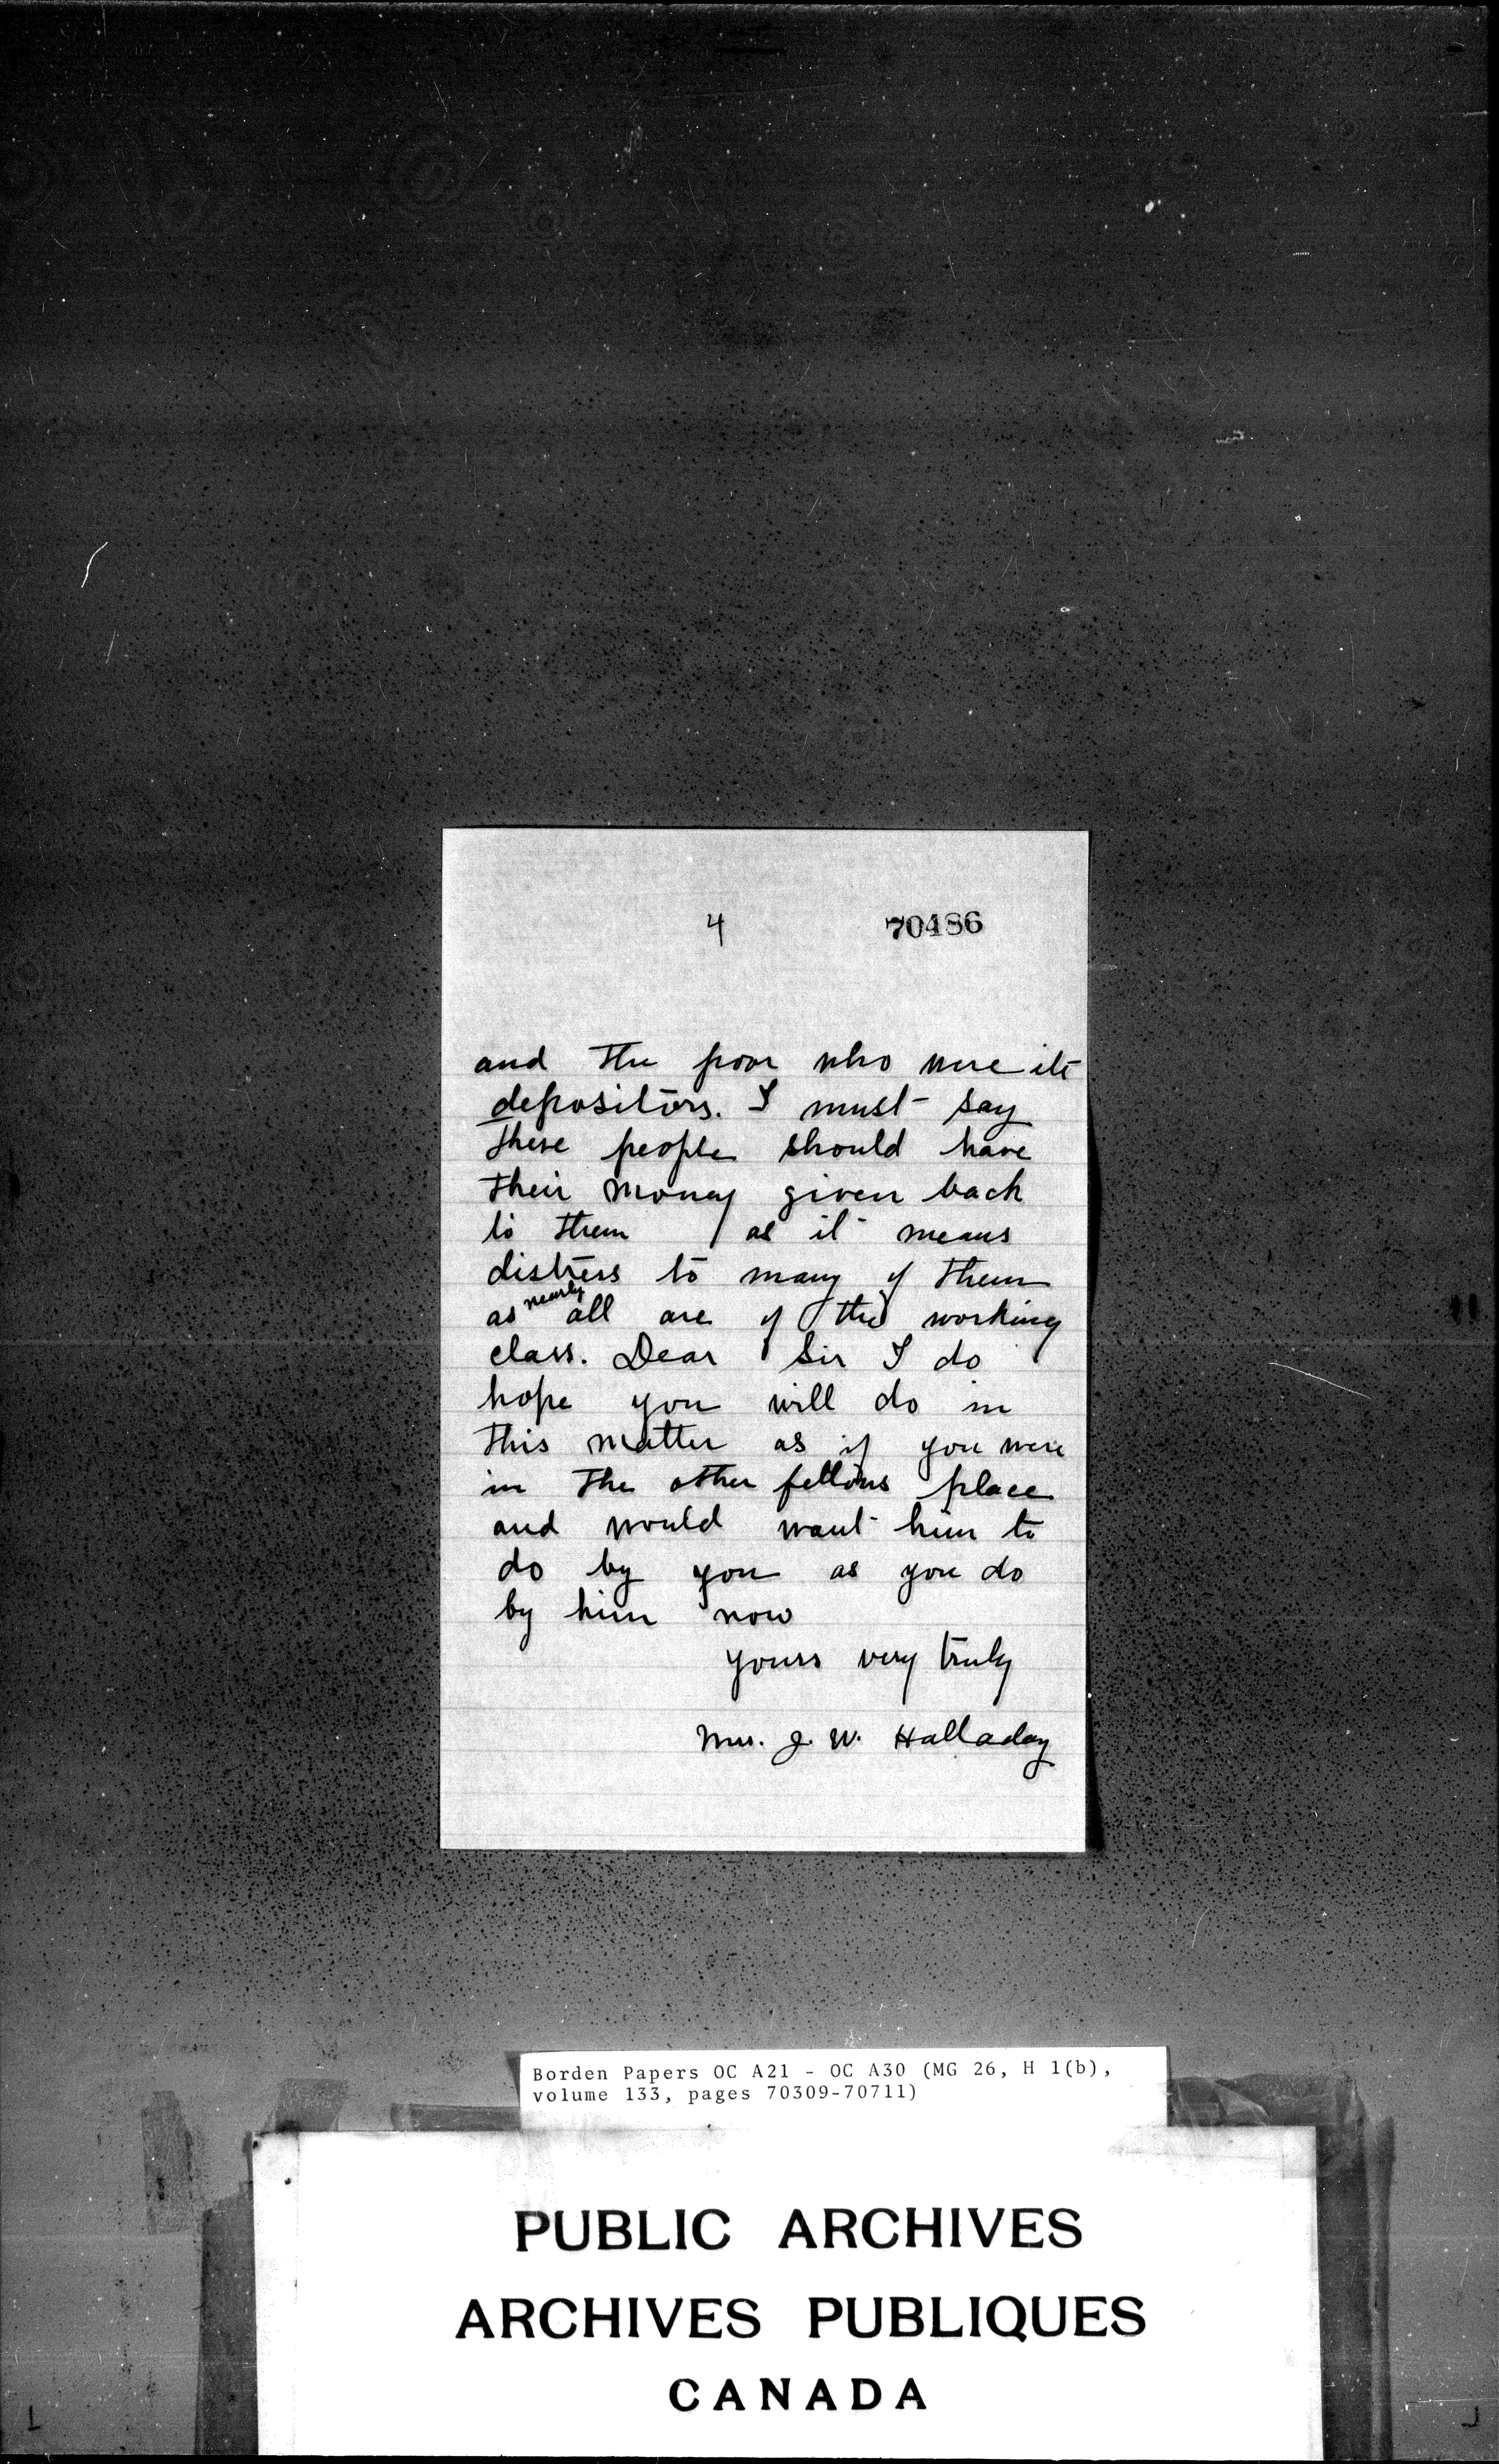 4 70486
and the poor who were its
depositors. I must say
these people should have
their money given back
to them as it means
distress to many of them
as nearly all are of the working
class. Dear Sir I do
hope you will do in
this matter as if you were
in the other fellows place
and would want him to
do by you as you do
by him now
yours very truly
Mrs. J. W. Halladay
Borden Papers OC A21 - OC A30 (MG 26, H 1(b),
volume 133, pages 70309-70711)
PUBLIC ARCHIVES
ARCHIVES PUBLIQUES
CANADA